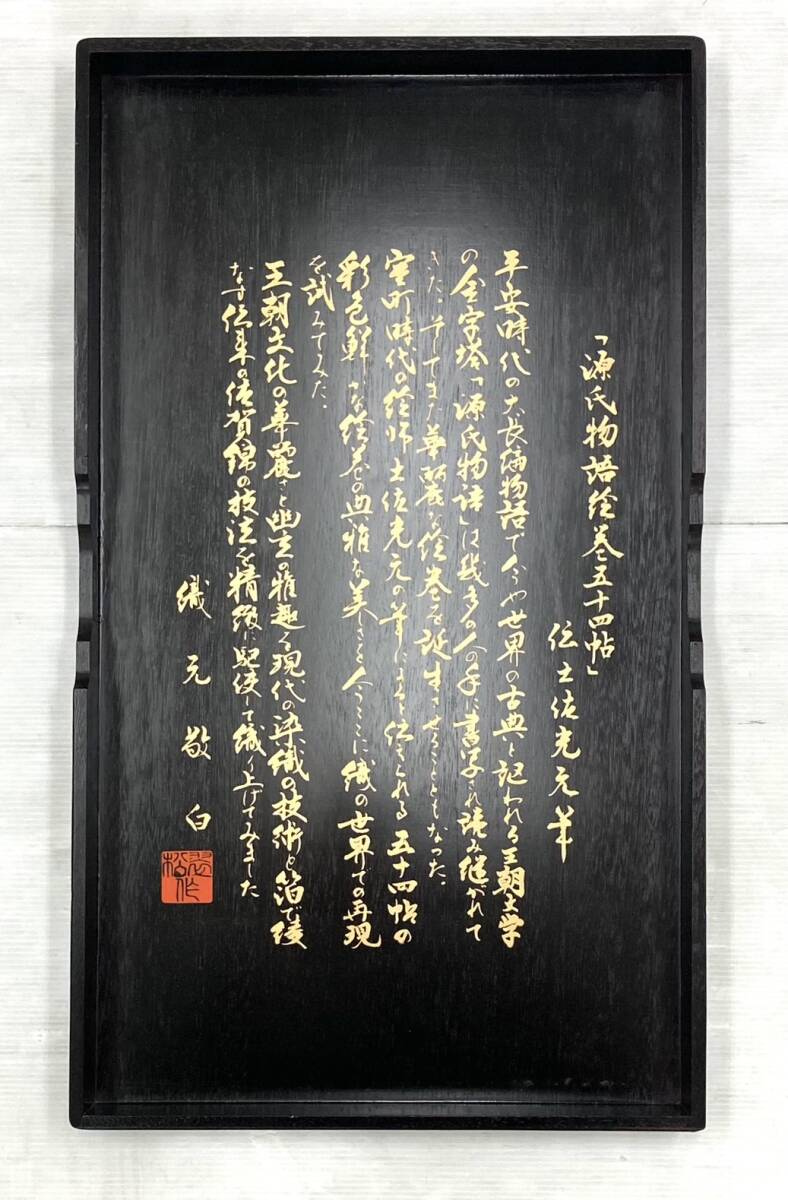 「源氏物語絵巻五十四帖」
伝土佐光元筆
平安時代の大長編物語で今や世界の古典と記われる王朝文学
の金字塔「源氏物語」は幾多の人の手に書写され読み継がれて
きた。そしてまた華麗な絵巻を誕生させることともなった。
室町時代の絵師土佐光元の筆によると伝えられる五十四帖の
彩色鮮やかな絵巻の典雅な美しさを今ここに織の世界での再現
を試みてみた。
王朝文化の華麗さと幽玄の雅趣を現代の染織の技術と箔で綾
なす伝来の佐賀錦の技法を精緻に駆使して織り上げてみました
織元敬白
翠松作